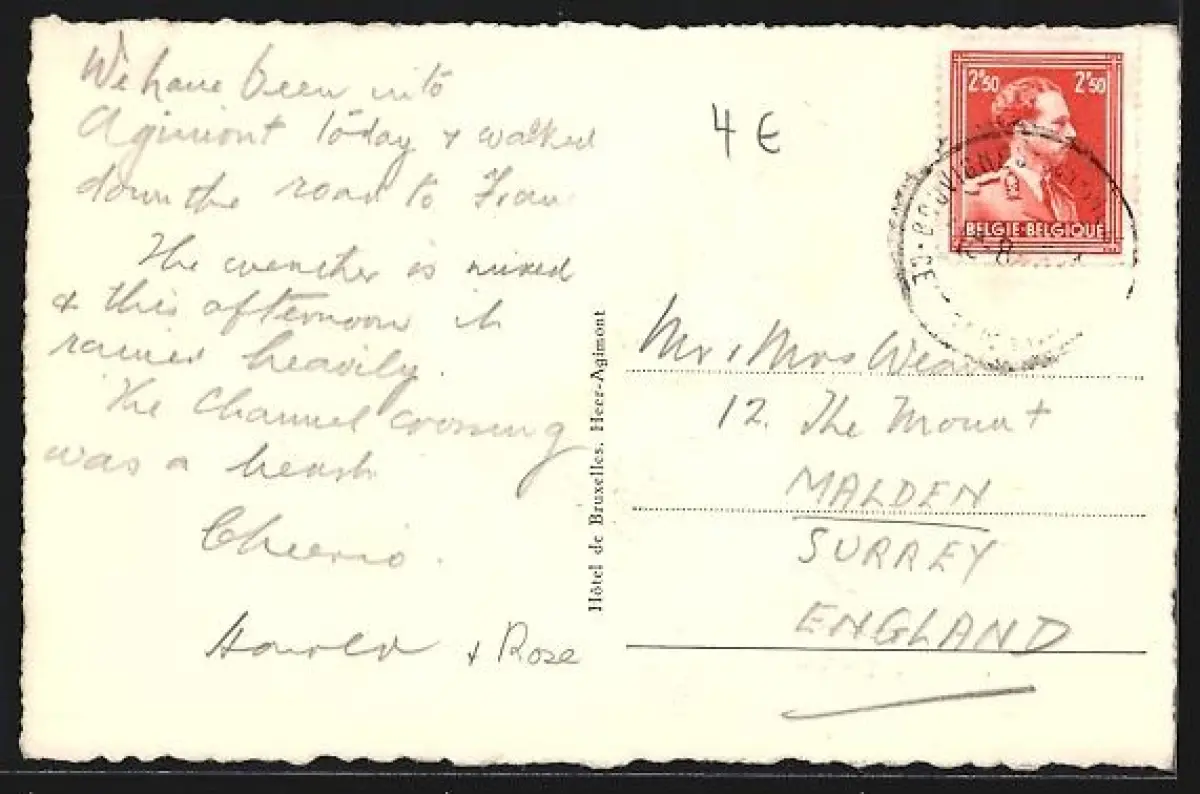 We have been into
Agimont today & walked
down the road to
The weather is mixed
& this afternoon it
rained heavily.
The Channel crossing
was a
Cheerio.
Harold & Rose
Hôtel de Bruxelles. Heer-Agimont
4 €
2F50 2F50
BELGIE-BELGIQUE
Mr & Mrs
12. The Mount
MALDEN
SURREY
ENGLAND